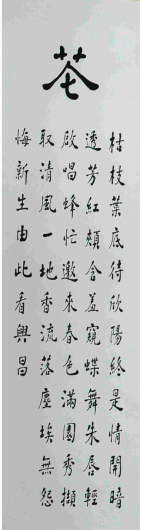 花
枯枝葉底待欣陽終是情開暗
透芳紅頰含羞窺蝶舞朱唇輕
啟唱蜂忙邀來春色滿園秀擷
取清風一地香流落塵埃無怨
悔新生由此看興昌